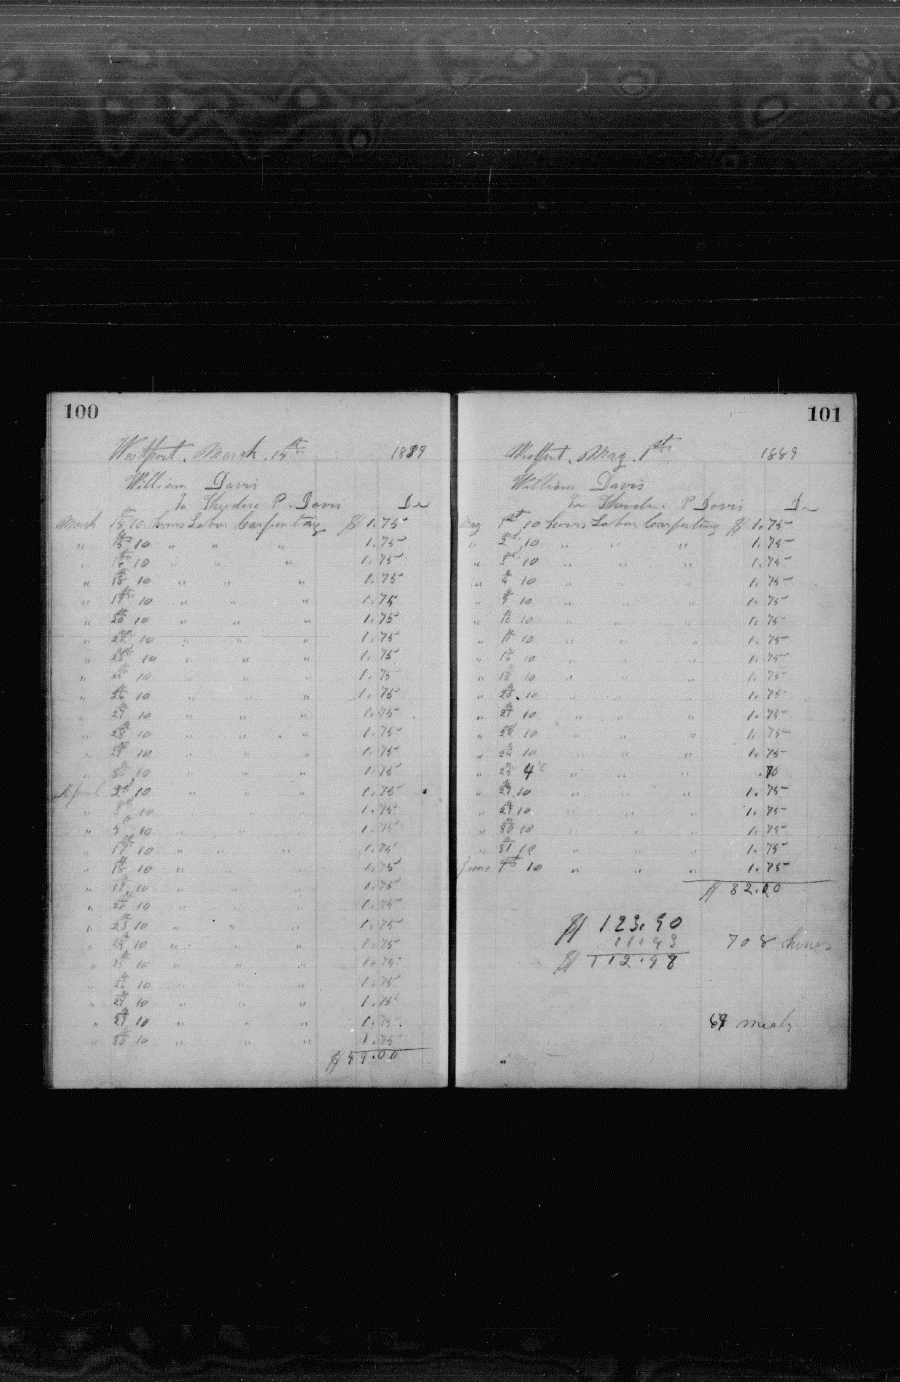 100
Westport. March. 15th 1889
William Davis
To Theodore P. Davis Dr
March 15 10 hours Labor Carpenting $ 1.75
" 15 10 " " " 1.75
" 16 10 " " " 1.75
" 18 10 " " " 1.75
" 19 10 " " " 1.75
" 20 10 " " " 1.75
" 22 10 " " " 1.75
" 23 10 " " " 1.75
" 25 10 " " " 1.75
" 26 10 " " " 1.75
" 27 10 " " " 1.75
" 28 10 " " " 1.75
" 29 10 " " " 1.75
" 30 10 " " " 1.75
April 2d 10 " " " 1.75
" 3d 10 " " " 1.75
" 10 " " " 1.75
" 17 10 " " " 1.75
" 18 10 " " " 1.75
" 19 10 " " " 1.75
" 20 10 " " " 1.75
" 23 10 " " " 1.75
" 10 " " " 1.75
" 25 10 " " " 1.75
" 26 10 " " " 1.75
" 27 10 " " " 1.75
" 10 " " " 1.75
" 30 10 " " " 1.75
101
Westport. May. 1st 1889
William Davis
To Theodore P Davis Dr
May 1st 10 hours Labor Carpenting $ 1.75
" 2d 10 " " " 1.75
" 3d 10 " " " 1.75
" 4 10 " " " 1.75
" 10 " " " 1.75
" 10 " " " 1.75
" 10 " " " 1.75
" 16 10 " " " 1.75
" 18 10 " " " 1.75
" 20 10 " " " 1.75
" 21 10 " " " 1.75
" 22 10 " " " 1.75
" 24 10 " " " 1.75
" 25 4 " " " .70
" 27 10 " " " 1.75
" 29 10 " " " 1.75
" 30 10 " " " 1.75
" 31 10 " " " 1.75
June 10 " " " 1.75
$ 32.20
$ 123.90
11.93
$ 112.98
708 hours
meals